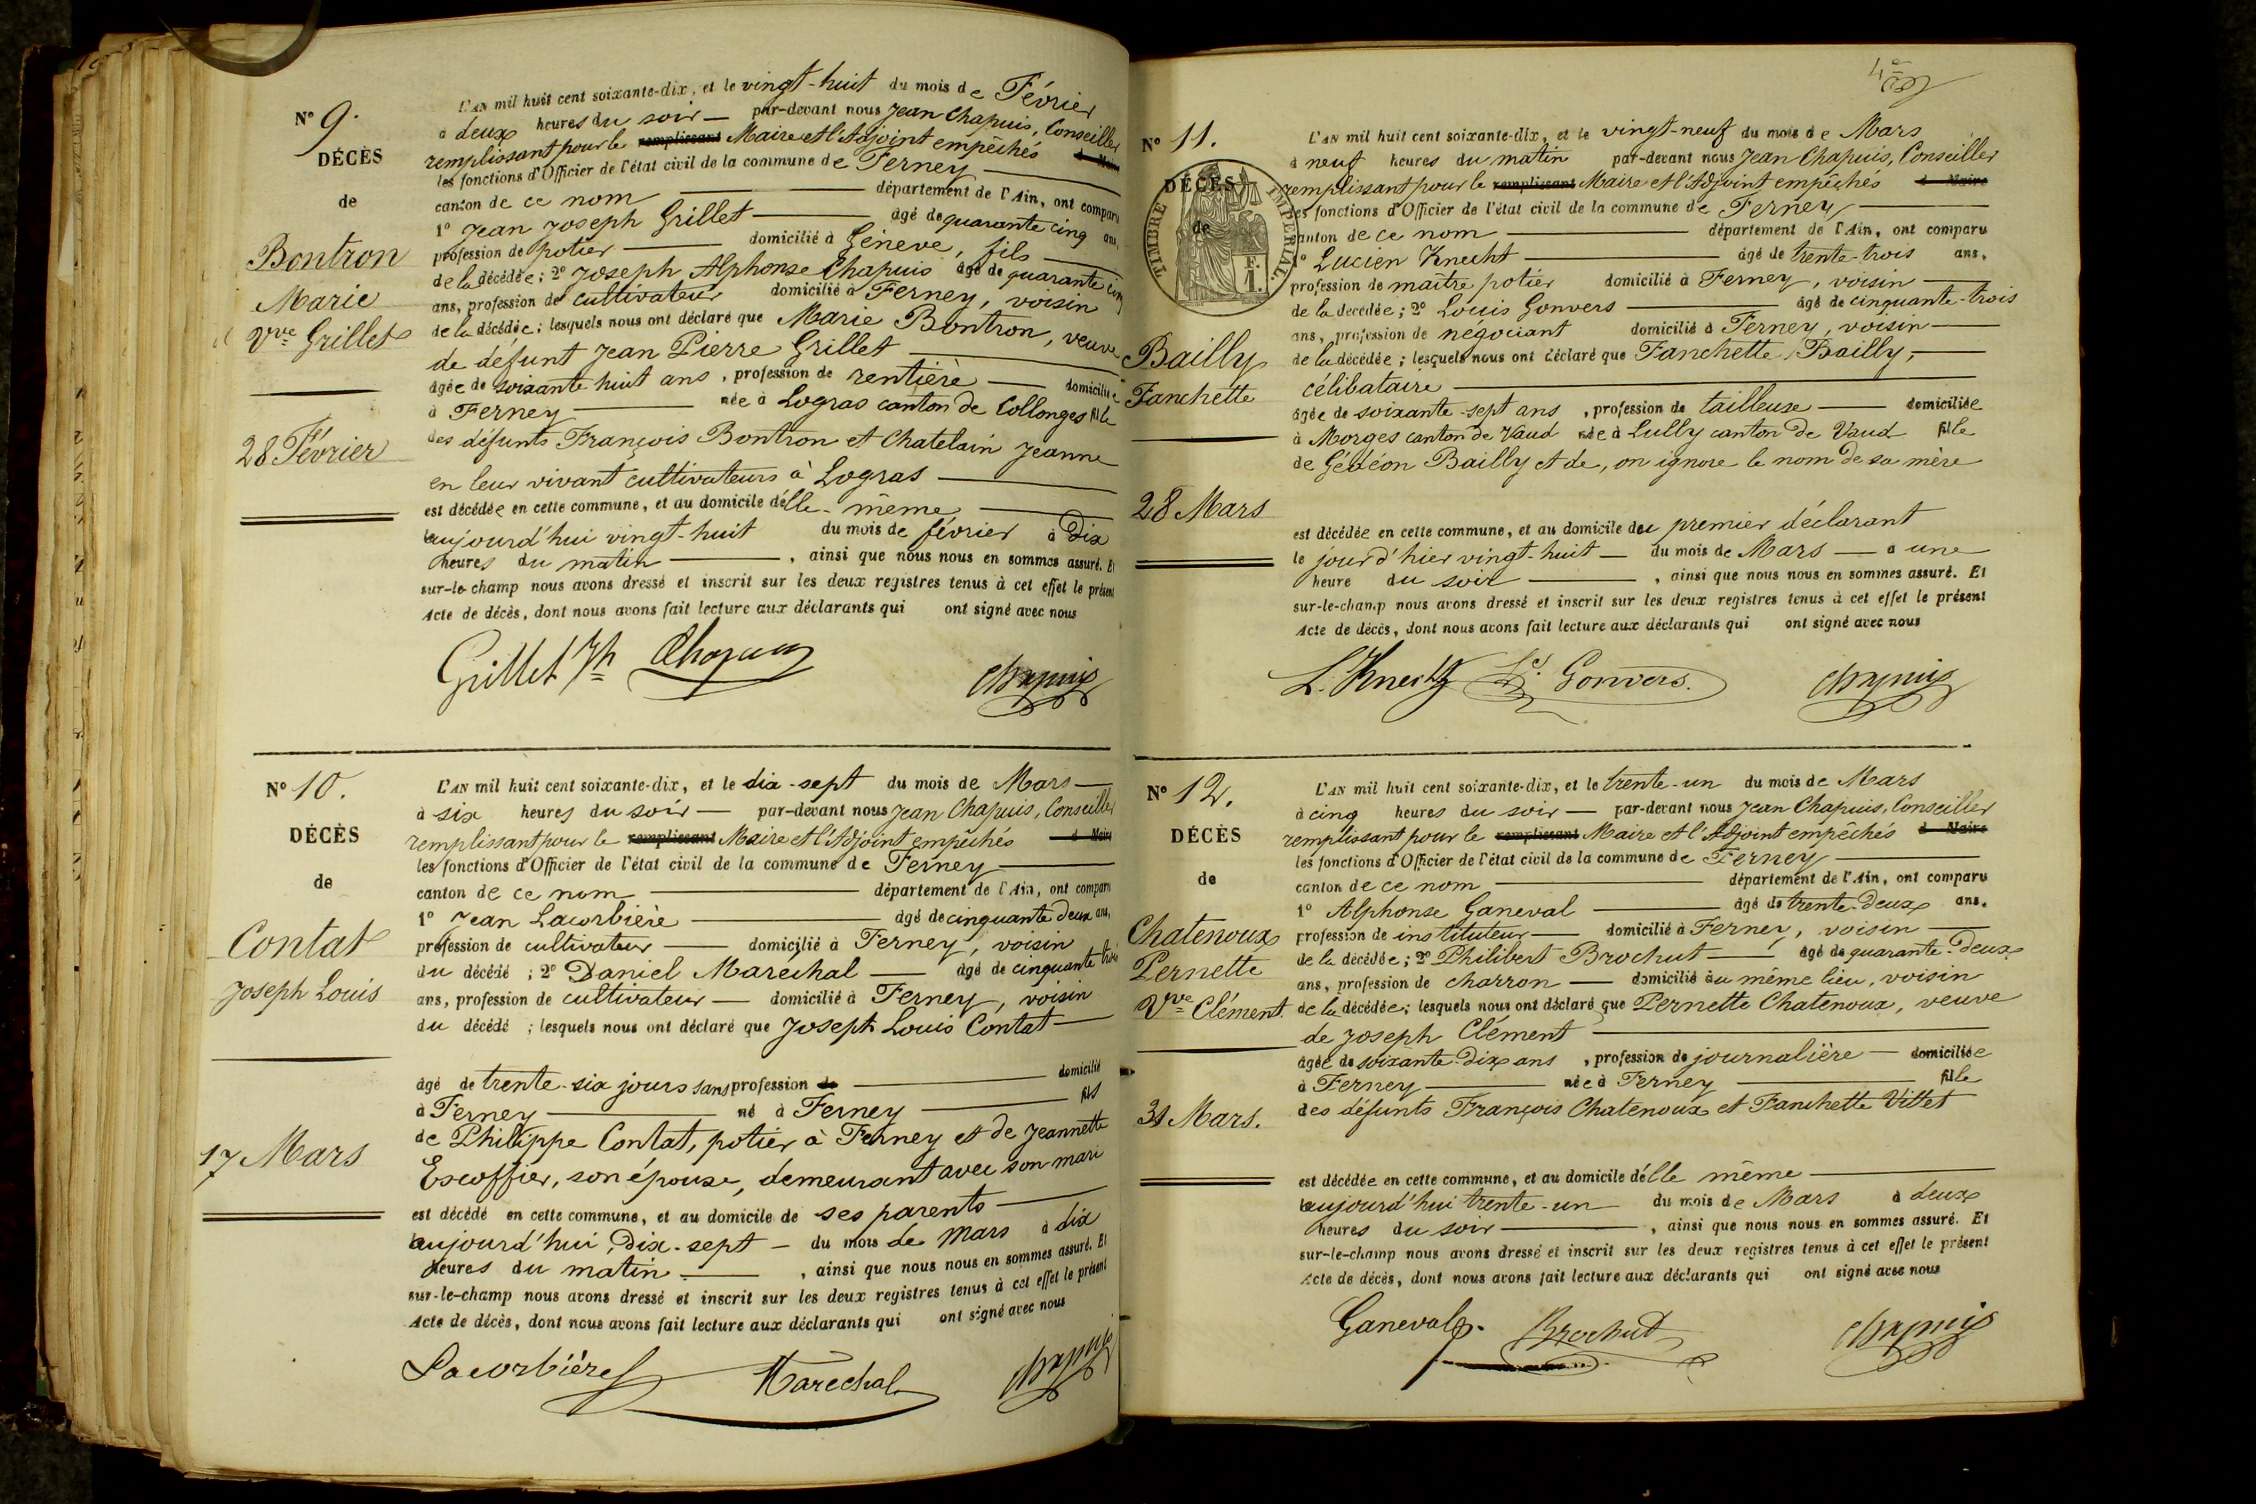 N° 9.
DÉCÈS
de
Bontron
Marie
Vve Grillet
28 Février
L'AN mil huit cent soixante-dix, et le vingt-huit du mois de Février
à deux heures du soir — par-devant nous Jean Chapuis, Conseiller
remplissant pour le remplissant Maire et l'Adjoint empêchés d Maire
les fonctions d'Officier de l'état civil de la commune de Ferney
canton de ce nom — département de l'Ain, ont comparu
1° Jean Joseph Grillet — âgé de quarante cinq ans,
profession de potier — domicilié à Genève, fils
de la décédée; 2° Joseph Alphonse Chapuis âgé de quarante cinq
ans, profession de cultivateur domicilié à Ferney, voisin
de la décédée; lesquels nous ont déclaré que Marie Bontron, veuve
de défunt Jean Pierre Grillet
âgée de soixante huit ans, profession de rentière — domiciliée
à Ferney — née à Logras canton de Collonges fille
des défunts François Bontron et Chatelain Jeanne
en leur vivant cultivateurs à Logras
est décédée en cette commune, et au domicile d'elle-même
aujourd'hui vingt-huit du mois de février à dix
heures du matin —, ainsi que nous nous en sommes assuré. Et
sur-le-champ nous avons dressé et inscrit sur les deux registres tenus à cet effet le présent
Acte de décès, dont nous avons fait lecture aux déclarants qui ont signé avec nous
Grillet Jh Chapuis Chapuis
N° 10.
DÉCÈS
de
Contat
Joseph Louis
17 Mars
L'AN mil huit cent soixante-dix, et le dix-sept du mois de Mars —
à six heures du soir — par-devant nous Jean Chapuis, Conseiller
remplissant pour le remplissant Maire et l'Adjoint empêchés d Maire
les fonctions d'Officier de l'état civil de la commune de Ferney
canton de ce nom — département de l'Ain, ont comparu
1° Jean Lacorbière — âgé de cinquante deux ans,
profession de cultivateur — domicilié à Ferney, voisin
du décédé; 2° Daniel Maréchal — âgé de cinquante trois
ans, profession de cultivateur — domicilié à Ferney, voisin
du décédé; lesquels nous ont déclaré que Joseph Louis Contat —
âgé de trente-six jours sans profession de — domicilié
à Ferney — né à Ferney — fils
de Philippe Contat, potier à Ferney et de Jeannette
Escoffier, son épouse, demeurant avec son mari
est décédé en cette commune, et au domicile de ses parents —
aujourd'hui, Dix-sept — du mois de Mars à dix
heures du matin —, ainsi que nous nous en sommes assuré. Et
sur-le-champ nous avons dressé et inscrit sur les deux registres tenus à cet effet le présent
Acte de décès, dont nous avons fait lecture aux déclarants qui ont signé avec nous
Lacorbière Maréchal Chapuis
N° 11.
DÉCÈS
de
TIMBRE IMPÉRIAL.
F.
1.
Bailly
Fanchette
28 Mars
L'AN mil huit cent soixante-dix, et le vingt-neuf du mois de Mars
à neuf heures du matin par-devant nous Jean Chapuis, Conseiller
remplissant pour le remplissant Maire et l'Adjoint empêchés d Maire
les fonctions d'Officier de l'état civil de la commune de Ferney
canton de ce nom — département de l'Ain, ont comparu
1° Lucien Knecht — âgé de trente-trois ans,
profession de maître potier domicilié à Ferney, voisin —
de la décédée; 2° Louis Gonvers — âgé de cinquante-trois
ans, profession de négociant domicilié à Ferney, voisin —
de la décédée; lesquels nous ont déclaré que Fanchette Bailly, —
célibataire
âgée de soixante-sept ans, profession de tailleuse — domiciliée
à Morges canton de Vaud née à Lully canton de Vaud fille
de Gédéon Bailly et de, on ignore le nom de sa mère
est décédée en cette commune, et au domicile du premier déclarant
le jour d'hier vingt-huit — du mois de Mars — à une
heure du soir —, ainsi que nous nous en sommes assuré. Et
sur-le-champ nous avons dressé et inscrit sur les deux registres tenus à cet effet le présent
Acte de décès, dont nous avons fait lecture aux déclarants qui ont signé avec nous
L. Knecht Ls. Gonvers. Chapuis
N° 12.
DÉCÈS
de
Chatenoux
Pernette
Vve Clément
31 Mars.
L'AN mil huit cent soixante-dix, et le trente-un du mois de Mars
à cinq heures du soir — par-devant nous Jean Chapuis, Conseiller
remplissant pour le remplissant Maire et l'Adjoint empêchés d Maire
les fonctions d'Officier de l'état civil de la commune de Ferney
canton de ce nom — département de l'Ain, ont comparu
1° Alphonse Ganeval — âgé de trente-deux ans,
profession de instituteur — domicilié à Ferney, voisin —
de la décédée; 2° Philibert Brochut — âgé de quarante-deux
ans, profession de charron — domicilié au même lieu, voisin
de la décédée; lesquels nous ont déclaré que Pernette Chatenoux, veuve
de Joseph Clément
âgée de soixante-dix ans, profession de journalière — domiciliée
à Ferney — née à Ferney — fille
des défunts François Chatenoux et Fanchette Vittet
est décédée en cette commune, et au domicile d'elle même
aujourd'hui trente-un du mois de Mars à deux
heures du soir —, ainsi que nous nous en sommes assuré. Et
sur-le-champ nous avons dressé et inscrit sur les deux registres tenus à cet effet le présent
Acte de décès, dont nous avons fait lecture aux déclarants qui ont signé avec nous
Ganeval. Brochut Chapuis